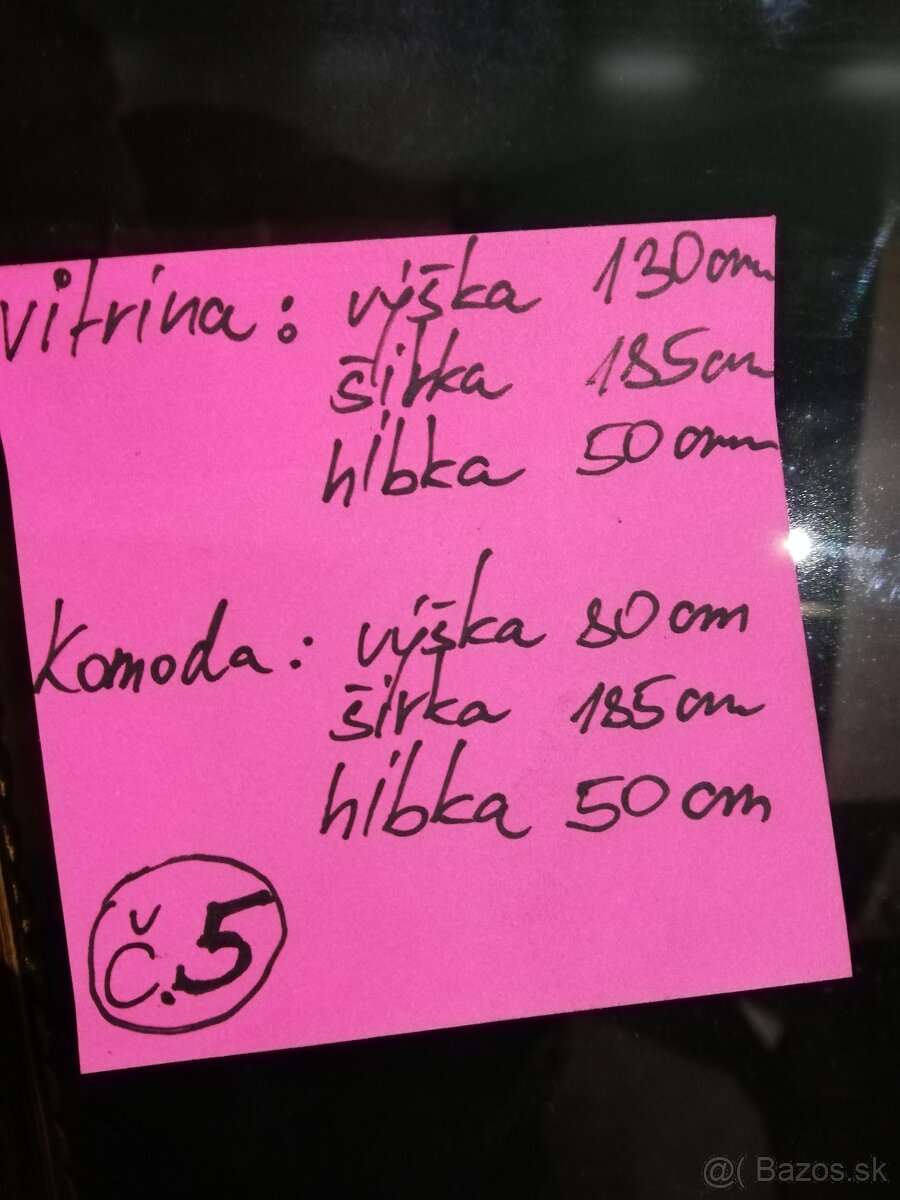 vitrina: výška 130cm
šírka 185cm
hĺbka 50cm
Komoda: výška 80cm
šírka 185cm
hĺbka 50cm
č.5
@( Bazos.sk